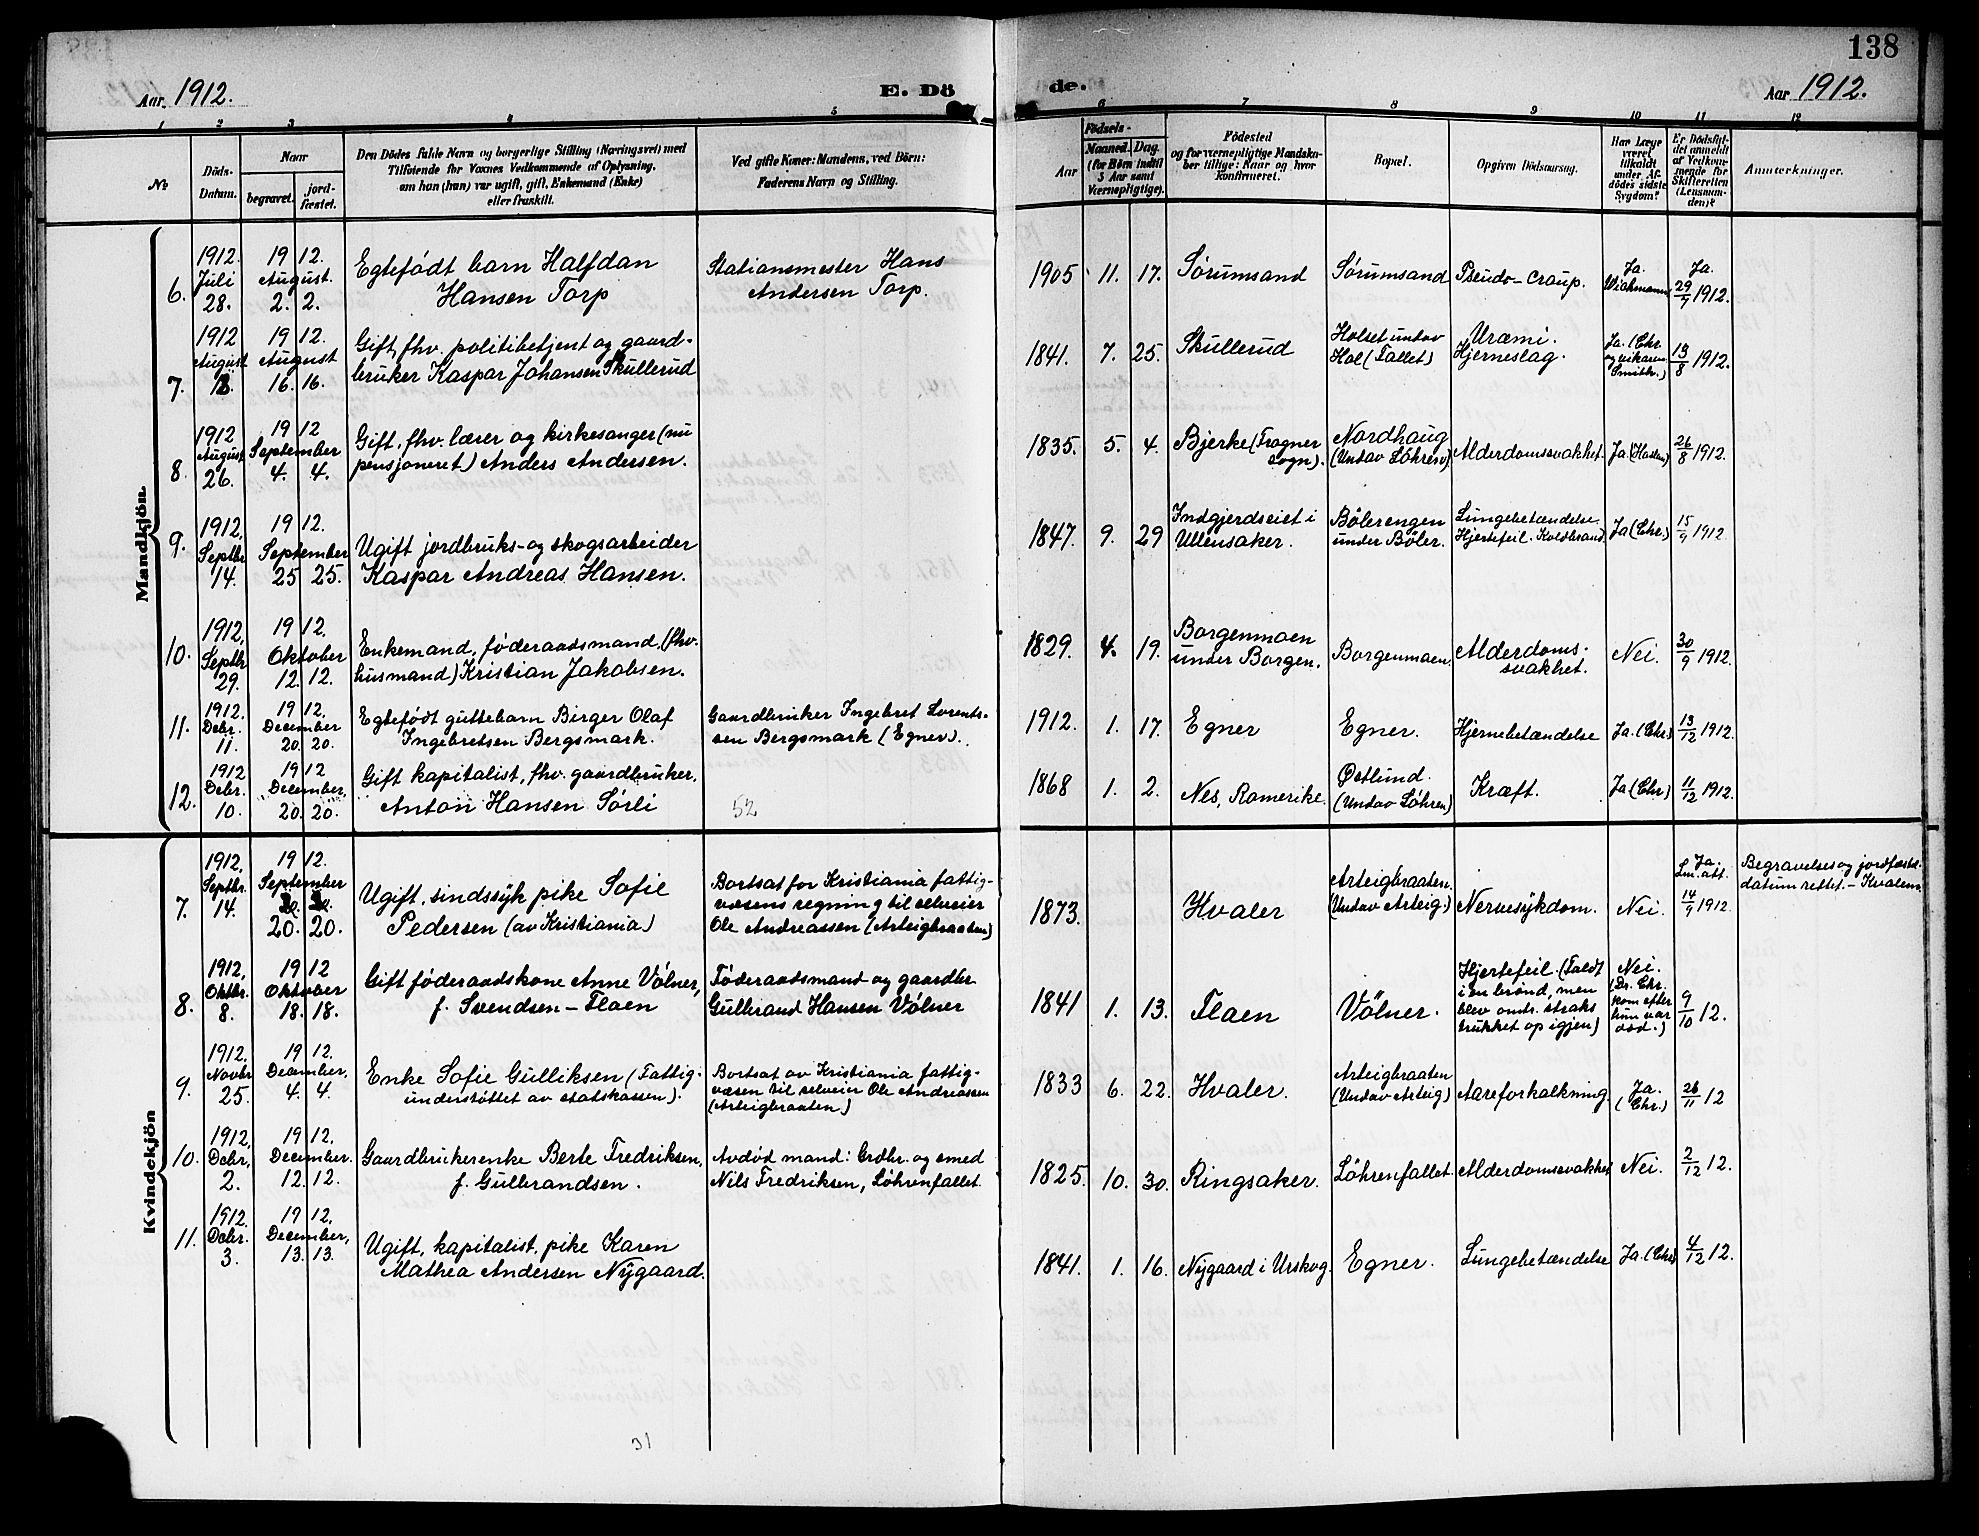 138
Aar 1912.
E. Dö
de.
Aar 1912.
1 2 3 4 5 6 7 8 9 10 11 12
№
Döds-Datum.
Naar
begravet.
jord-fæstet.
Den Dödes fulde Navn og borgerlige Stilling (Næringsvei) med
Tilföiende for Voxnes Vedkommende af Oplysning,
om han (hun) var ugift, gift, Enkemand (Enke)
eller fraskilt.
Ved gifte Koner: Mandens, ved Börn:
Faderens Navn og Stilling.
Födsels-
Aar
Maaned. Dag.
(for Börn indtil
5 Aar samt
Værnepligtige).
Födested
og for værnepligtige Mandska-
ber tillige: Naar og hvor
konfirmeret.
Bopæl.
Opgiven Dödsaarsag.
Har Læge
været
tilkaldt
under Af-
dödes sidste
Sygdom?
Er Dödsfal-
det anmeldt
af Vedkom-
mende for
Skifteretten
(Lensman-
den)?
Anmærkninger.
Mandkjön.
6. 1912. Juli 28. 1912. August. 2. 2.
Egtefødt barn Halfdan
Hansen Torp
Stationsmester Hans
Andersen Torp.
1905 11. 17. Sørumsand Sørumsand Pseudo-Croup. Ja. Wichmann Ja. 29/7 1912.
7. 1912 August 1912. August 16. 16.
Gift, fhv. politibetjent og gaard-
bruker Kaspar Johansen Skullerud
1841. 7. 25. Skullerud
Holset undav
Hol (Fallet)
Uræmi.
Hjerneslag.
Ja. (Chr.
og vikaren
Smith.)
/8 1912.
8. 1912 August 26. 1912 September 4. 4.
Gift, fhv. lærer og kirkesanger (nu
pensjoneret) Anders Andersen.
1835. 5. 4. Bjerke (Frogner
sogn).
Nordhaug
(Undav Løhren).
Alderdomssvakhet. Ja. (Haslem) 26/8 1912.
9. 1912, Septbr 14. 1912. September 25 25.
Ugift jordbruks- og skogsarbeider
Kaspar Andreas Hansen.
1847. 9. 29 Indgjerdseiet i
Ullensaker.
Bølerengen
under Bøler.
Lungebetændelse
Hjertefeil. Koldbrand.
Ja (Chr.) 15/9 1912
10. 1912, Septbr 29. 1912. Oktober 12. 12.
Enkemand, føderaadsmand, (fhv.
husmand) Kristian Jakobsen.
1829. 4. 19. Borgenmoen
under Borgen.
Borgenmoen. Alderdoms-
svakhet.
Nei. 30/9 1912.
11. 1912. Debr. 11. 1912. December 20. 20.
Egtefødt guttebarn Birger Olaf
Ingebretsen Bergsmark.
Gaardbruker Ingebret Lorents-
sen Bergsmark (Egner).
1912. 1. 17. Egner Egner. Hjernebetændelse Ja. (Chr.) 13/12 1912.
12. 1912 Debr. 10. 1912 December, 20. 20.
Gift kapitalist, fhv. gaardbruker,
Anton Hansen Sørli
52
1868 1. 2. Nes, Romerike.
Østlund.
(Undav Løhren)
Kræft. Ja (Chr.) 11/12 1912.
Kvindekjön
7. 1912, Septbr. 14. 1912. September 20. 20.
Ugift, sindssyk pike Sofie
Pedersen (av Kristiania)
Bortsat for Kristiania fattig-
væsens regning til selveier
Ole Andreassen (Arteigbraaten)
1873. Hvaler
Arteigbraaten.
(Undav Arteig.)
Nervesykdom. Nei.
Ja.
Lm. att.
14/9 1912.
Begravelses og jordfæst.
datum rettet. - Kvalem
8. 1912, Oktbr. 8. 1912 Oktober 18. 18.
Gift føderaadskone Anne Vølner,
f. Svendsen - Flaen
Føderaadsmand og gaardbr
Gulbrand Hansen Vølner
1841 1. 13. Flaen Vølner.
Hjertefeil. (Faldt
i en brønd, men
blev omtr. straks
trukket op igjen)
Nei.
(Dr. Chr.
kom efter
hun var
død.)
9/10 12.
9. 1912 Novbr 25. 1912. December, 4. 4.
Enke Sofie Gulliksen (Fattig-
understøttet av statskassen).
Bortsat av Kristiania fattig-
væsen til selveier Ole Andreassen
(Arteigbraaten)
1833 6. 22. Hvaler.
Arteigbraaten
(Undav Arteig)
Aareforkalkning. Ja. (Chr.) 26/11 12
10. 1912, Debr, 2. 1912. December. 12. 12.
Gaardbrukerenke Berte Fredriksen,
f. Gulbrandsen.
Avdød mand: Grdbr. og smed
Nils Fredriksen, Løhrenfallet.
1825. 10. 30. Ringsaker. Løhrenfallet Alderdomssvakhet Nei. 2/12 12.
11. 1912. Debr. 3. 1912. December, 13. 13.
Ugift, kapitalist, pike Karen
Mathea Andersen Nygaard.
1841. 1. 16. Nygaard i Urskog. Egner. Lungebetændelse Ja. (Chr) 4/12 12.
31